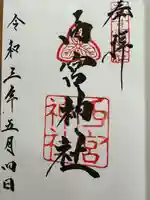 奉拝
西宮神社
西宮神社
令和三年五月四日